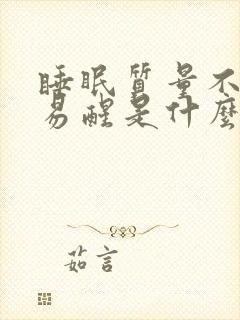 睡眠质量不
易醒是什麼
茹言